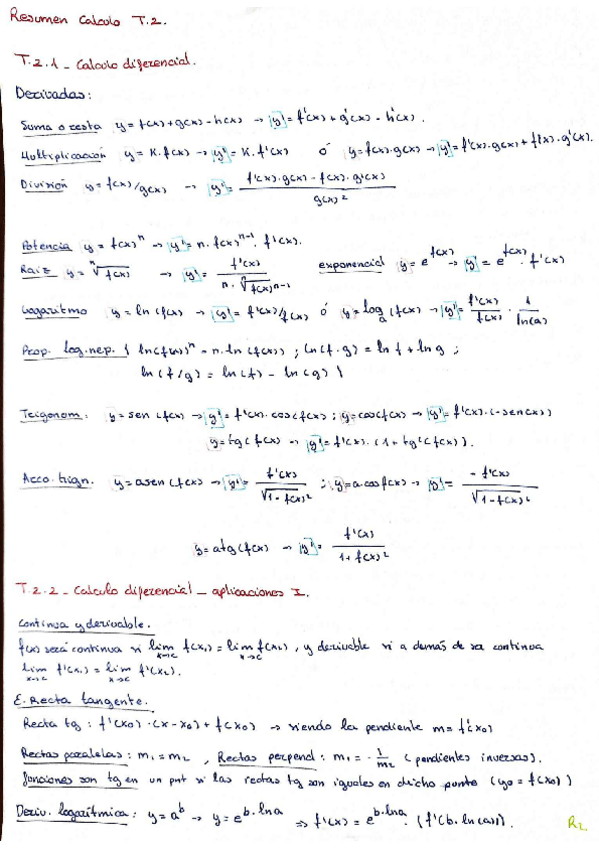 Resumen Calculo T.2.
T.2.1 - Calculo diferencial.
Derivadas:
Suma o resta y = f(x)+g(x)-h(x) → y' = f'(x)+g'(x)-h'(x).
Multiplicación y = K.f(x) → y' = K.f'(x) ó y=f(x).g(x) → y'=f'(x).g(x)+f(x).g'(x).
División y=f(x)/g(x) → y' = f'(x).g(x) - f(x).g'(x) / g(x)²
Potencia y = f(x)ⁿ → y' = n.f(x)ⁿ⁻¹.f'(x).
Raiz y = ⁿ√f(x) → y' = f'(x) / n.ⁿ√f(x)ⁿ⁻¹ exponencial y = e^f(x) → y' = e^f(x).f'(x)
Logaritmo y = ln(f(x)) → y' = f'(x)/f(x) ó y = logₐ(f(x)) → y' = f'(x)/f(x) . 1/ln(a)
Prop. log.nep. { ln(f(x))ⁿ = n.ln(f(x)) ; ln(f.g) = ln f + ln g ;
ln(f/g) = ln(f) - ln(g) }
Trigonom: y=sen(f(x)) → y' = f'(x).cos(f(x)) ; y=cos(f(x)) → y' = f'(x).(-sen(x))
y=tg(f(x)) → y' = f'(x).(1+tg²(f(x))).
Arco.trign. y=asen(f(x)) → y' = f'(x) / √1-f(x)² ; y=a.cos f(x) → y' = -f'(x) / √1-f(x)²
y=atg(f(x)) → y' = f'(x) / 1+f(x)²
T.2.2 - Calculo diferencial - aplicaciones I.
Continua y derivable.
f(x) será continua si lim x→c f(x₁) = lim x→c f(x₂), y derivable si a demás de ser continua
lim x→c f'(x₁) = lim x→c f'(x₂).
E. Recta tangente.
Recta tg: f'(x0).(x-x0)+f(x0) → siendo la pendiente m=f'(x0)
Rectas paralelas: m₁=m₂, Rectas perpend: m₁=-1/m₂ (pendientes inversas).
funciones son tg en un pnt si las rectas tg son iguales en dicho punto (y0=f(x0))
Deriv. logarítmica: y=a^b → y=e^b.lna ⇒ f'(x)=e^b.lna.(f'(b.ln(a))).
R2